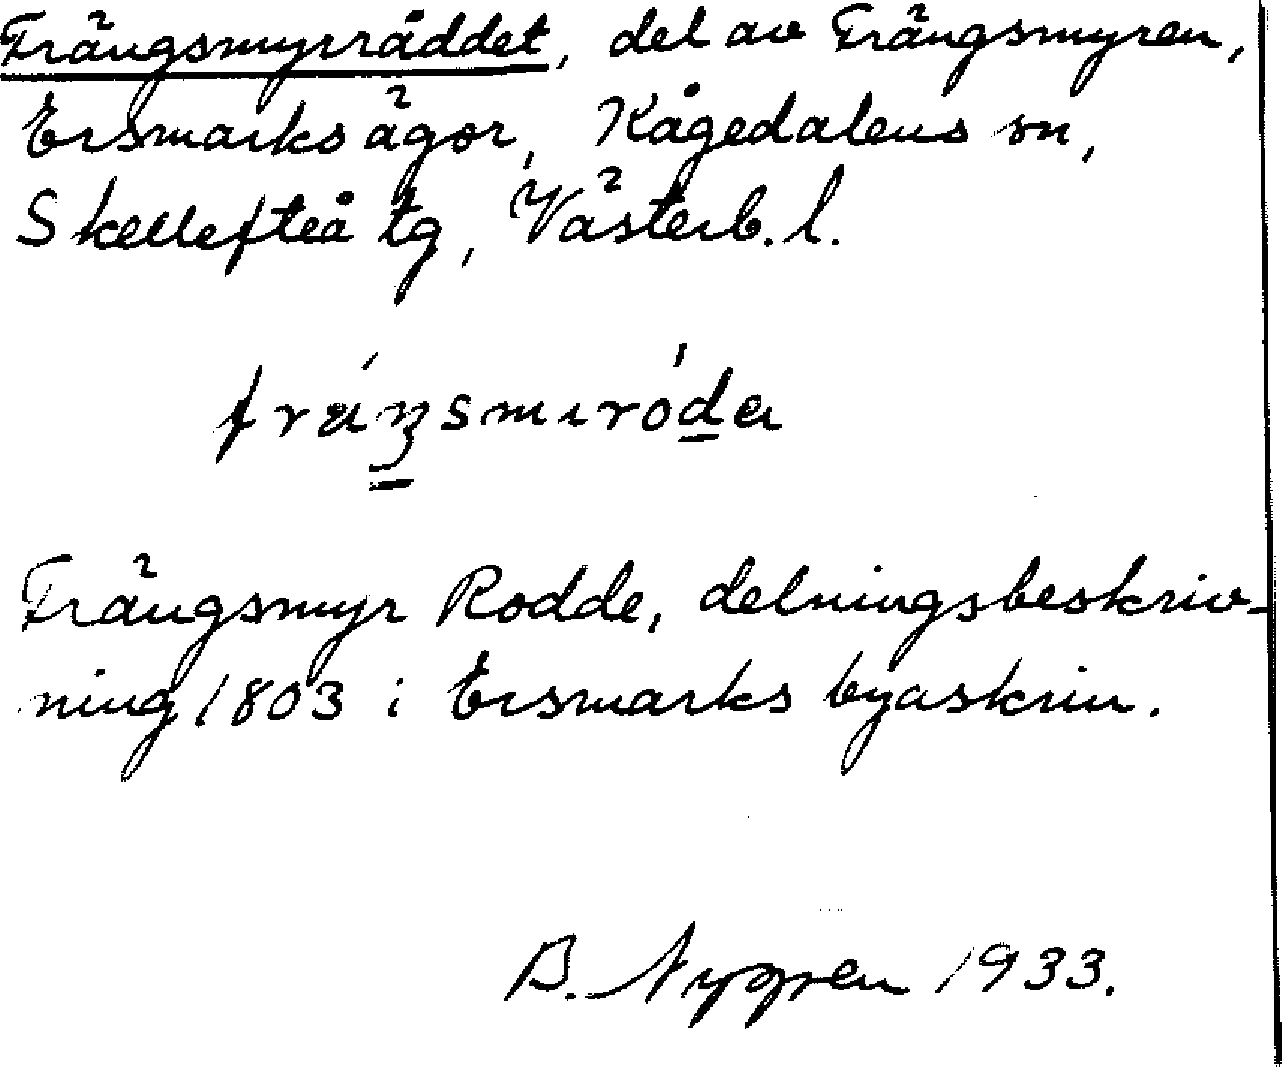 Frängsmyrråddet, del av Frängsmyren,
Ersmarks ägor, Kågedalens sn,
Skellefteå tg, Västerb. l.
Frängsmyr Rodde, delningsbeskriv-
ning 1803 i Ersmarks byaskrin.
B. Nygren 1933.